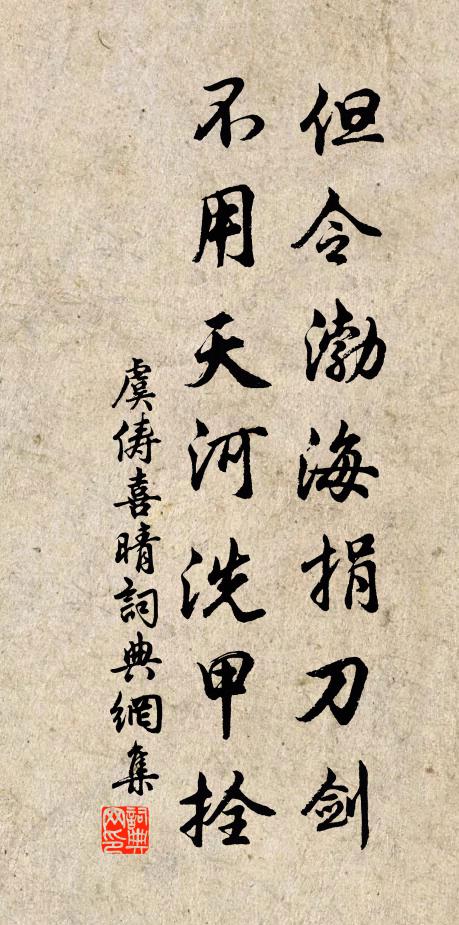 但令渤海捐刀剑
不用天河洗甲拴
虞俦喜晴詞典網集
詞典
网印